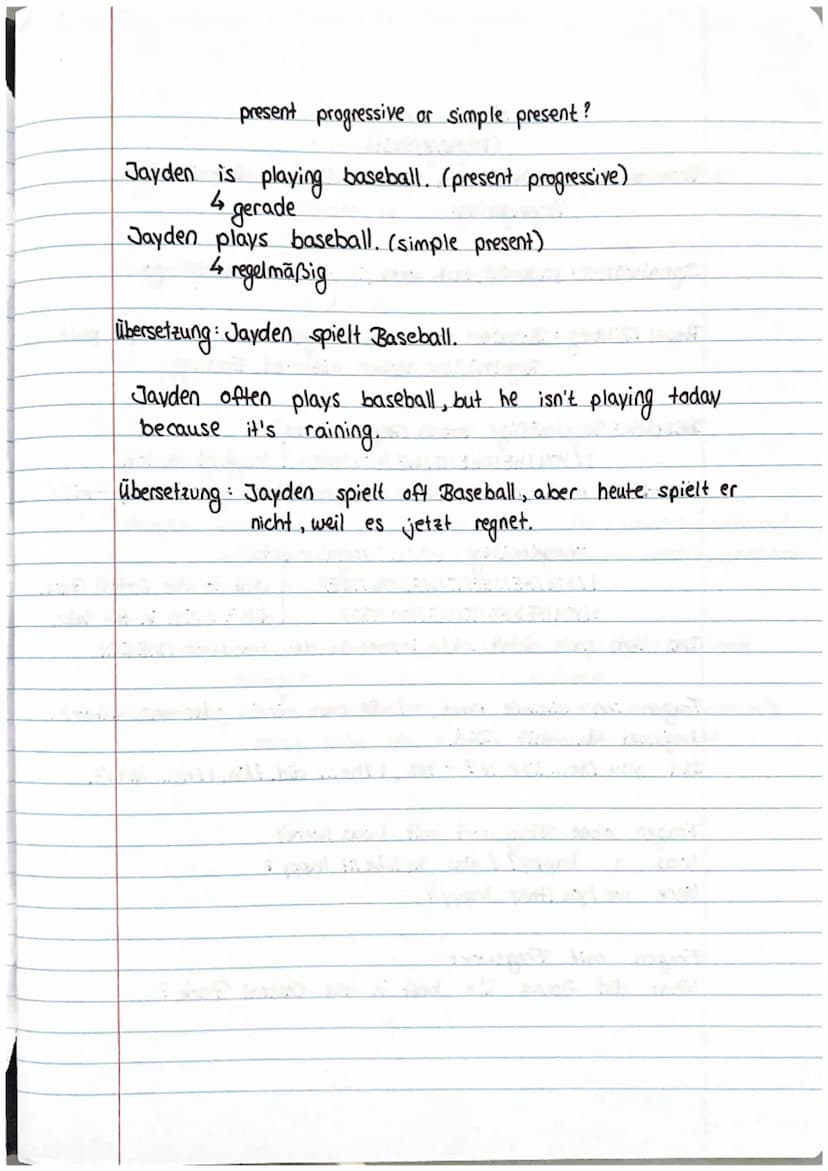 present progressive or simple present?
Jayden is playing baseball. (present progressive)
↳ gerade
Jayden plays baseball. (simple present)
↳ regelmäßig
Übersetzung: Jayden spielt Baseball.
Jayden often plays baseball, but he isn't playing today
because it's raining.
Übersetzung: Jayden spielt oft Baseball, aber heute spielt er
nicht, weil es jetzt regnet.